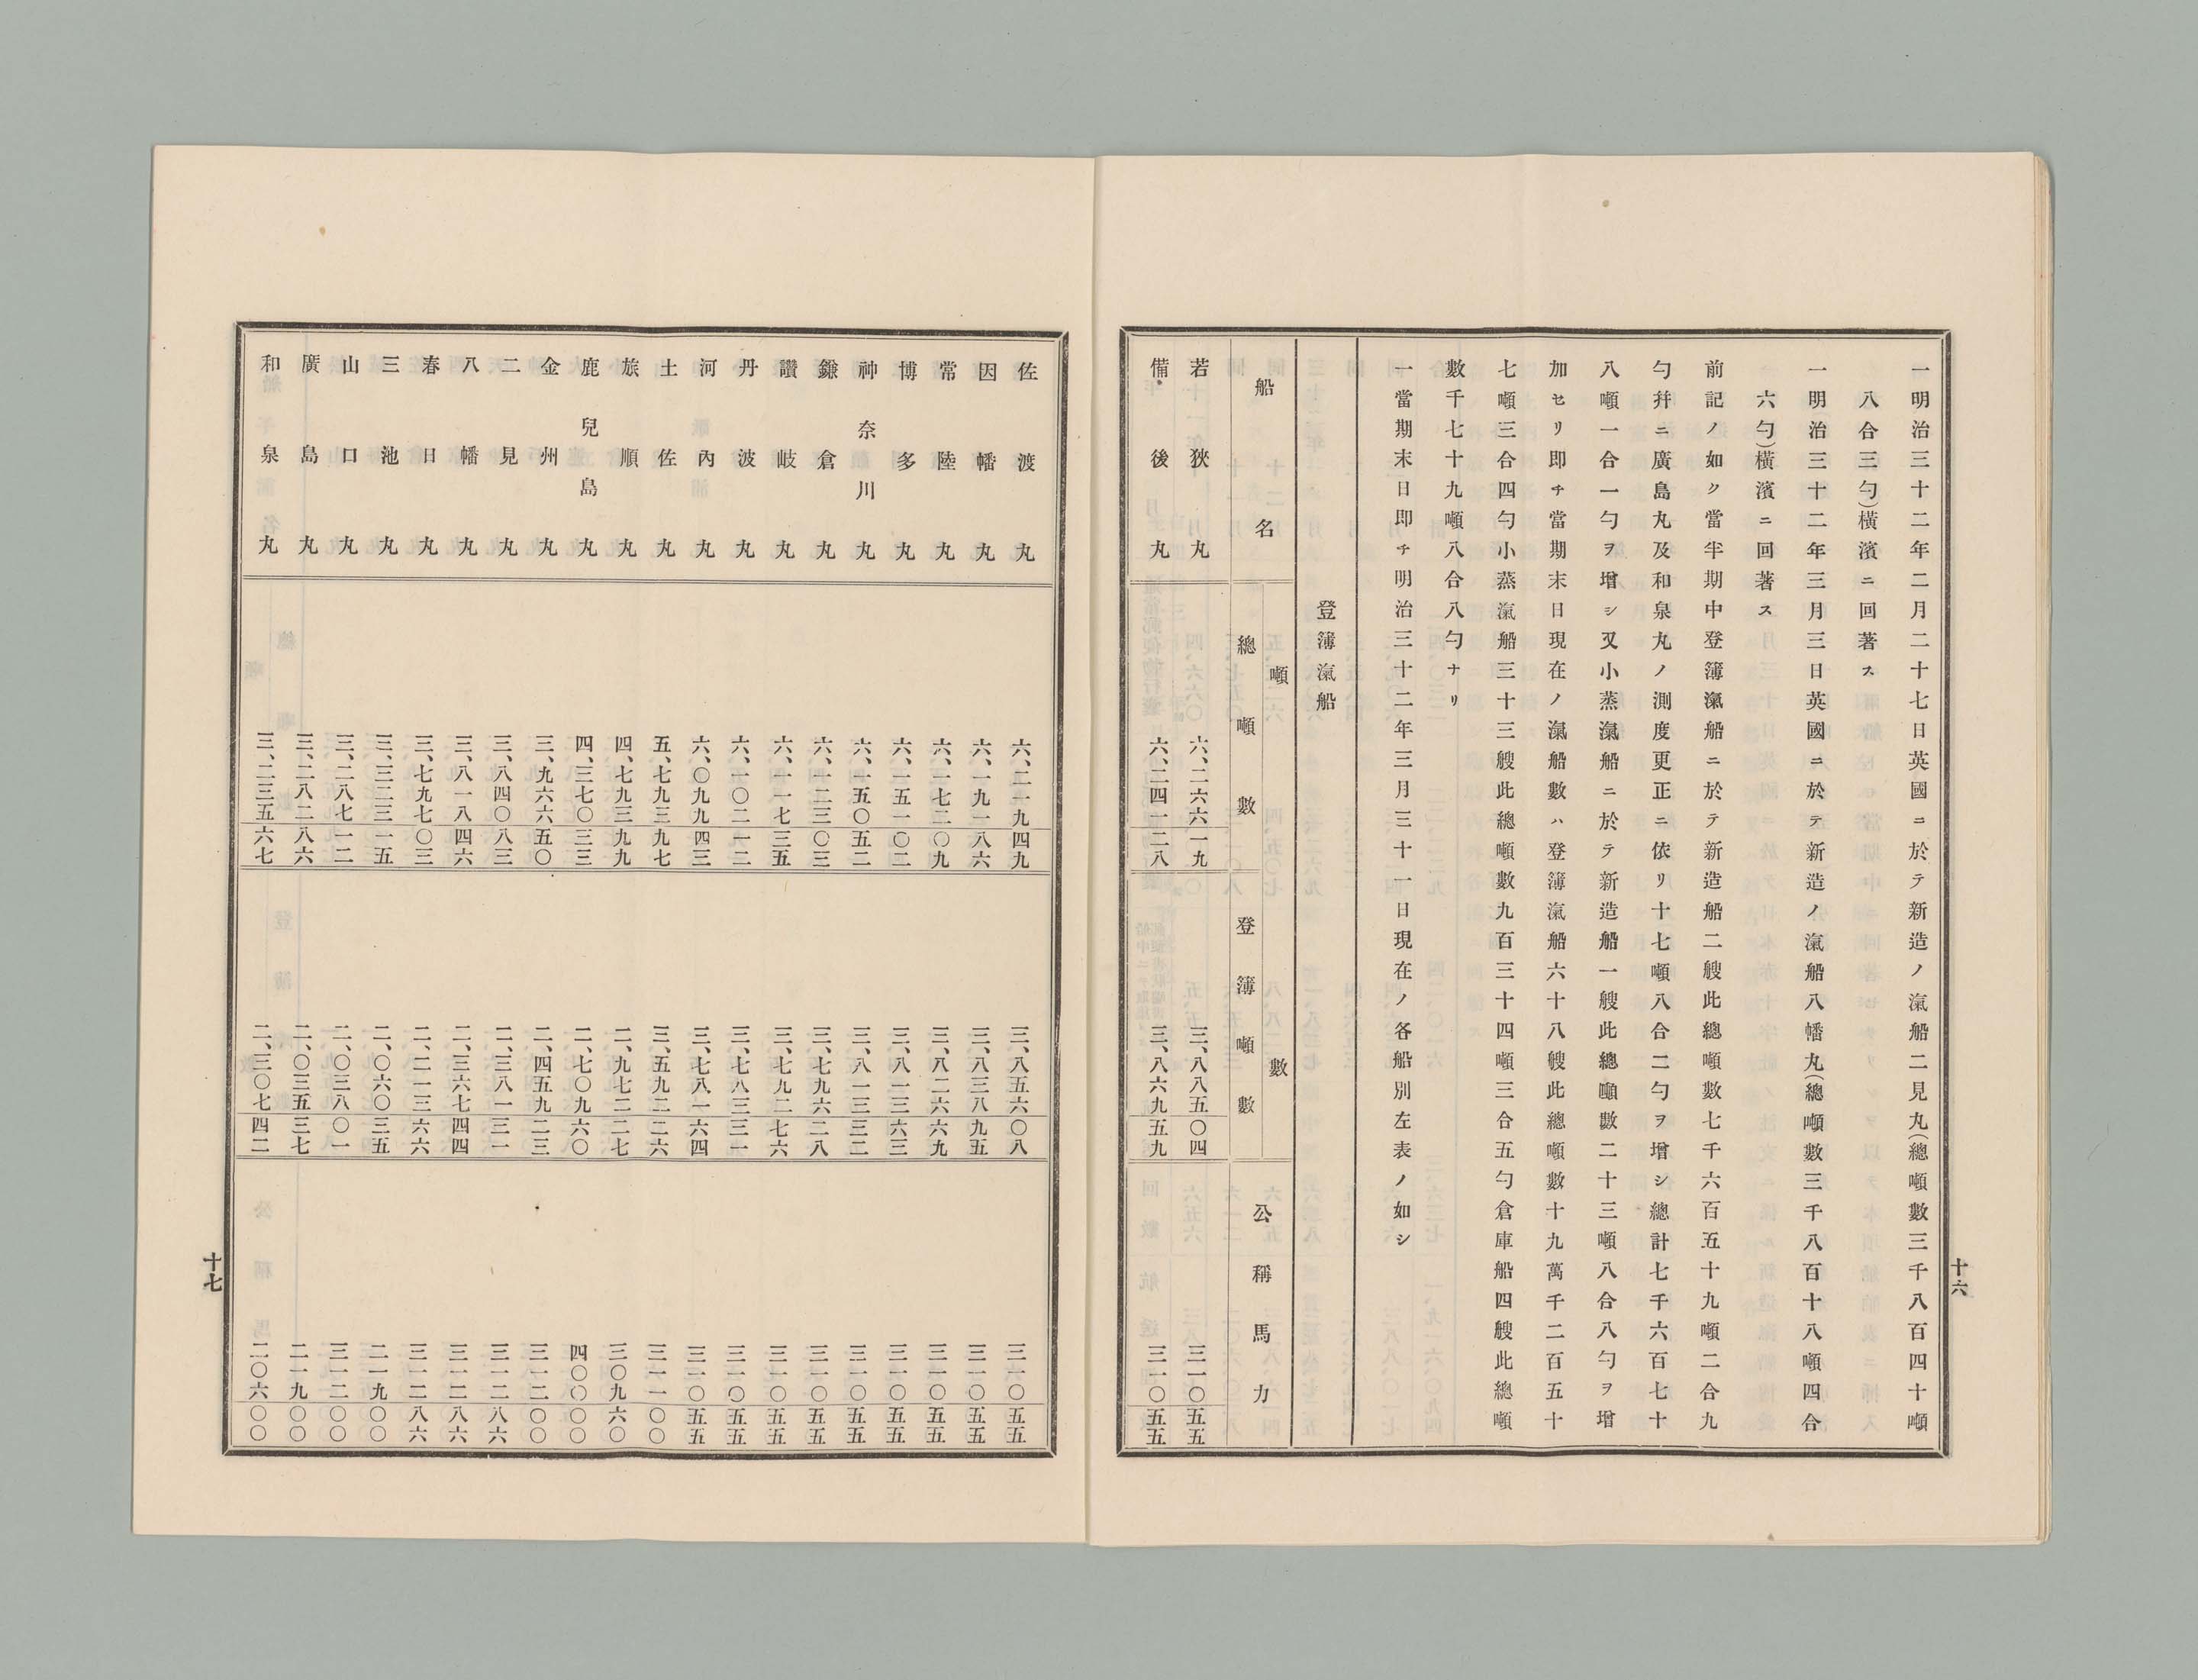 十六
一明治三十二年二月二十七日英國ニ於テ新造ノ滊船二見丸（總噸數三千八百四十噸
八合三勺）横濱ニ回著ス
一明治三十二年三月三日英國ニ於テ新造ノ滊船八幡丸（總噸數三千八百十八噸四合
六勺）横濱ニ回著ス
前記ノ如ク當半期中登簿滊船ニ於テ新造船二艘此總噸數七千六百五十九噸二合九
勺幷ニ廣島丸及和泉丸ノ測度更正ニ依リ十七噸八合二勺ヲ增シ總計七千六百七十
八噸一合一勺ヲ增シ又小蒸滊船ニ於テ新造船一艘此總噸數二十三噸八合八勺ヲ增
加セリ即チ當期末日現在ノ滊船數ハ登簿滊船六十八艘此總噸數十九萬千二百五十
七噸三合四勺小蒸滊船三十三艘此總噸數九百三十四噸三合五勺倉庫船四艘此總噸
數千七十九噸八合八勺ナリ
一當期末日即チ明治三十二年三月三十一日現在ノ各船別左表ノ如シ
登簿滊船
船名 噸數 公稱馬力
總噸數 登簿噸數
若狹丸 六、二六六一九 三、八八五〇四 三一〇五五
備後丸 六、二四一二八 三、八六九五九 三一〇五五
佐渡丸 六、二一九四九 三、八五六〇八 三一〇五五
因幡丸 六、一九一八六 三、八三八九五 三一〇五五
常陸丸 六、一七二〇九 三、八二六六九 三一〇五五
博多丸 六、一五一〇二 三、八一三六三 三一〇五五
神奈川丸 六、一五〇五二 三、八一三三二 三一〇五五
鎌倉丸 六、一二三〇三 三、七九六二八 三一〇五五
讃岐丸 六、一一七三五 三、七九二七六 三一〇五五
丹波丸 六、一〇二一二 三、七八三三一 三一〇五五
河內丸 六、〇九九四三 三、七八一六四 三一〇五五
土佐丸 五、七九三九七 三、五九二二六 三一一〇〇
旅順丸 四、七九三九九 二、九七二二七 三〇九六〇
鹿兒島丸 四、三七〇三三 二、七〇九六〇 四〇〇〇〇
金州丸 三、九六六五〇 二、四五九二三 三一二〇〇
二見丸 三、八四〇八三 二、三八一三一 三一二八六
八幡丸 三、八一八四六 二、三六七四四 三一二八六
春日丸 三、七九七〇三 二、二一三六六 三一二八六
三池丸 三、三二三一五 二、〇六〇三五 二一九〇〇
山口丸 三、二八七一二 二、〇三八〇一 三一二〇〇
廣島丸 三、二八二八六 二、〇三五三七 二一九〇〇
和泉丸 三、二三五六七 二、三〇七四二 二〇六〇〇
十七